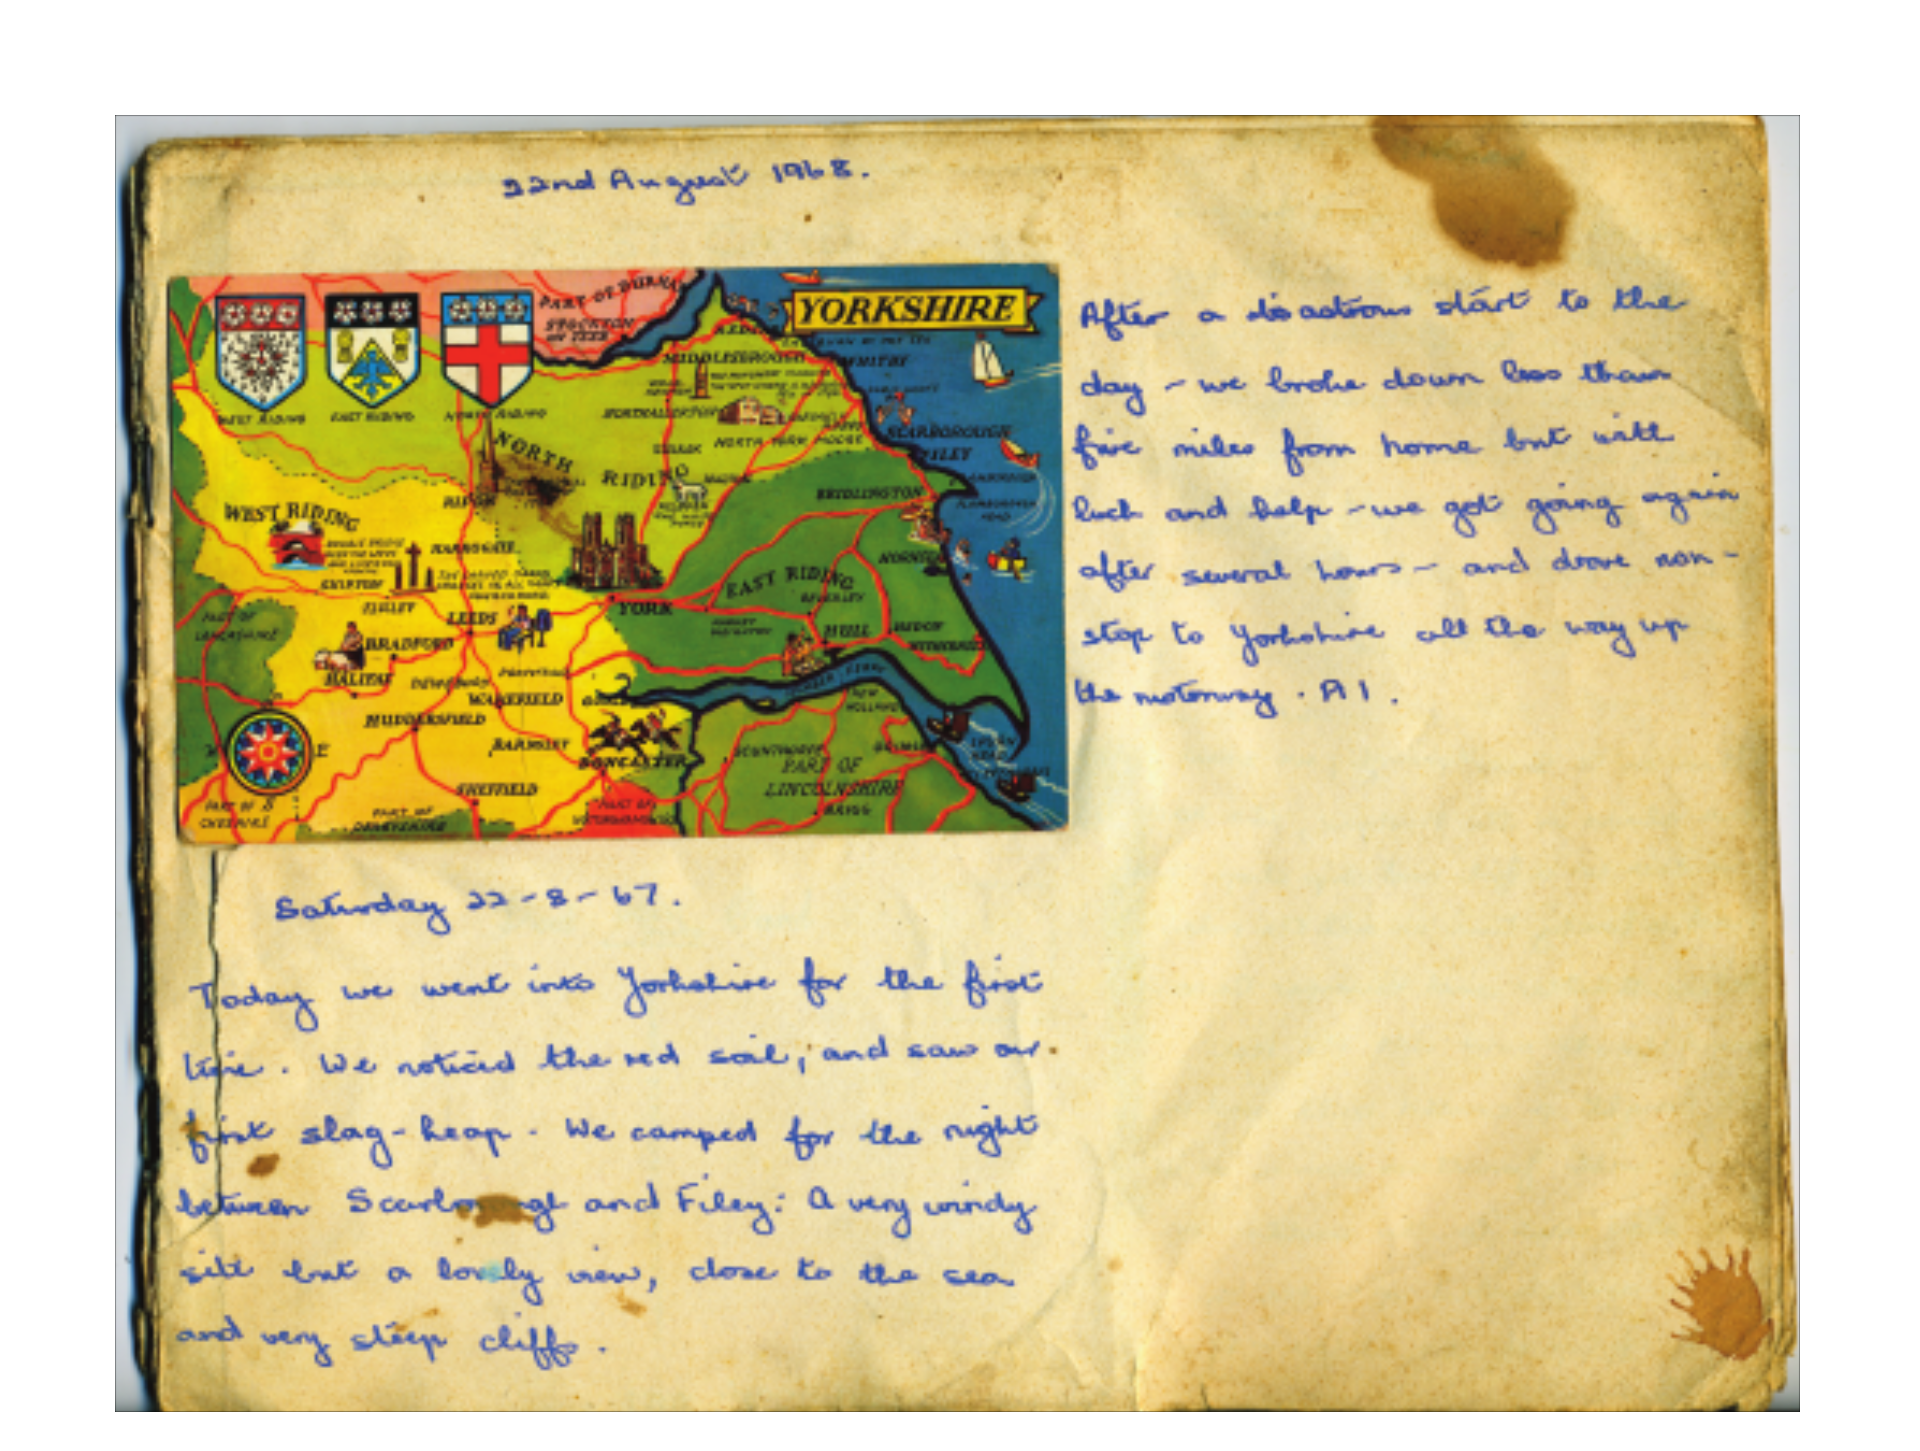 22nd August 1968.
YORKSHIRE
PART OF DURHAM
STOCKTON
ON TEES
MIDDLESBROUGH
WHITBY
WEST RIDING
EAST RIDING
NORTH RIDING
NORTHALLERTON
NORTH YORK MOORS
SCARBOROUGH
FILEY
NORTH
RIDING
BRIDLINGTON
WEST RIDING
RIPON
HARROGATE
SKIPTON
HORNSEA
EAST RIDING
BEVERLEY
YORK
PART OF
LANCASHIRE
LEEDS
BRADFORD
HULL
HEDON
WITHERNSEA
HALIFAX
DEWSBURY
WAKEFIELD
HUDDERSFIELD
NEW
HOLLAND
BARNSLEY
DONCASTER
SCUNTHORPE
GRIMSBY
SPURN
HEAD
E
PART OF
LINCOLNSHIRE
SHEFFIELD
BRIGG
PART OF
CHESHIRE
PART OF
DERBYSHIRE
PART OF
After a disastrous start to the
day - we broke down less than
five miles from home but with
luck and help - we got going again
after several hours - and drove non-
stop to Yorkshire all the way up
the motorway. A1.
Saturday 22-8-67.
Today we went into Yorkshire for the first
time. We noticed the red soil, and saw our
first slag-heap. We camped for the night
between Scarborough and Filey: A very windy
site but a lovely view, close to the sea
and very steep cliffs.